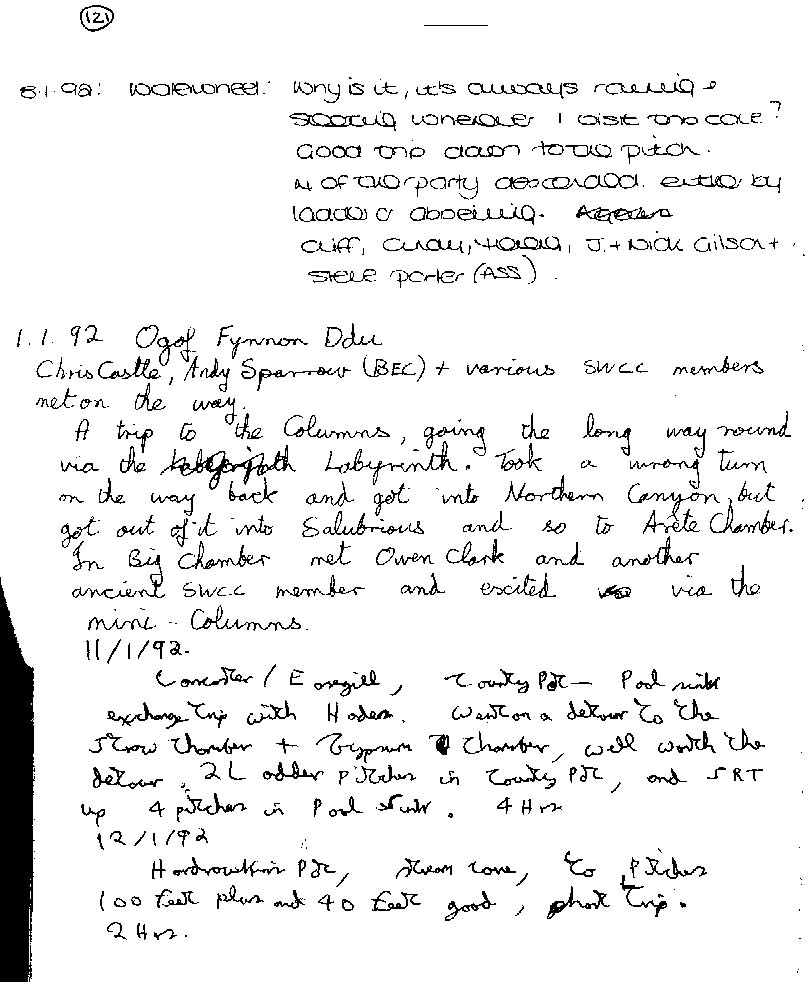 121
5.1.92: Waterwheel: Why is it, it's always raining +
whenever I visit this cave?
Good trip down to the pitch.
N of the party descended. either by
ladder or abseiling.
Cliff, J. + Nick Gilson +
Steve porter (ASS).
1.1.92 Ogof Fynnon Ddu
Chris Castle, Andy Sparrow (BEC) + various SWCC members
met on the way.
A trip to the Columns, going the long way round
via the Labyrinth. Took a wrong turn
on the way back and got into Northern Canyon, but
got out of it into Salubrious and so to Arete Chamber.
In Big Chamber met Owen Clark and another
ancient SWCC member and excited via the
mini-Columns.
11/1/92.
Lancaster / Easegill, County Pot - Pool sink
exchange trip with Haden. Went on a detour to the
Straw Chamber + Gypsum Chamber, well worth the
detour, 2 Ladder pitches in County Pot, and SRT
up 4 pitches in Pool sink. 4 Hrs
12/1/92
Pot, stream cave, to Pitches
100 feet plus and 40 feet good, short trip.
2 Hrs.